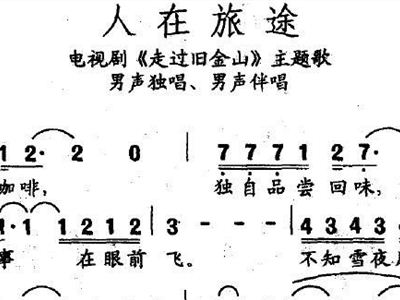 人在旅途
电视剧《走过旧金山》主题歌
男声独唱、男声伴唱
1 2· 2 0 7 7 7 1 2 7·
咖啡, 独自品尝回味,
· 1 1 2 1 2 3 - - - 4 3 4 3
事 在眼前飞。 不知雪夜